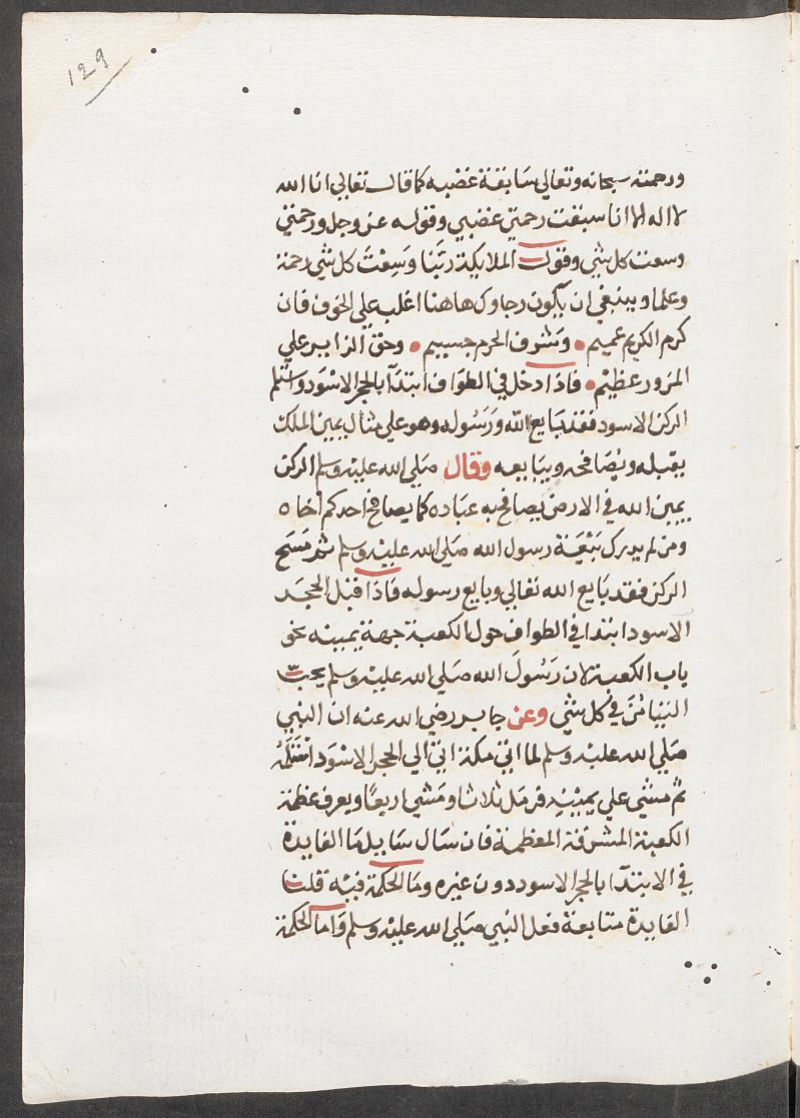 129
ورحمته سبحانه وتعالي سَابقة غضبه كما قال تعالي انا الله
لا اله الا انا سبقت رحمتي غضبي وقوله عز وجل ورحمتي
وسعت كل شي وقول الملايكة رَبَّنا وَسِعْتَ كل شي رحمة
وعلما وينبغي ان يكون رجاوك هاهنا اغلب علي الخوف فان
كرم الكريم عميم • وَشرف الحرم جسيم • وحق الزاير علي
المزور عظيم • فاذا دخل في الطوَاف ابتدَآ بالحجر الاسْوَد واستلم
الركن الاسود فقد بَايع الله وَرَسُوله وهو علي مثال يمين الملك
يقبله ويُصَافحه ويبَايعه وقال صَلي الله عليه وسلم الركن
يمين الله في الارض يصافح به عبَاده كما يصافح احدكم اخاه
ومن لم يدرك بَيْعَة رسول الله صَلي الله عليه وسلم ثم مَسَح
الركن فقد بَايع الله تعالي وبايع رسوله فاذا قبل الحجَر
الاسود ابتدا في الطواف حول الكعبة جهة يمينه نحو
باب الكعبة لان رَسُولَ الله صَلي الله عليه وسلم يحب
التيَامُنَ في كل شي وعن جابر رضي الله عنه ان النبي
صَلي الله عليه وسلم لما اتي مكة اتي الي الحجر الاسْوَد اسْتَلَمَهُ
ثم مشي علي يمينِهِ فرمَل ثلاثا ومَشي اربعًا ويعرف عظمة
الكعبة المشرفة المعظمة فان سَال سَايل مَا الفايدة
في الابتدَآ بالحجر الاسود دون غيره ومَا الحكمة فيْه قلت
الفايدة متابعة فعل النبي صَلي الله عليه وسلم وَاما الحكمة